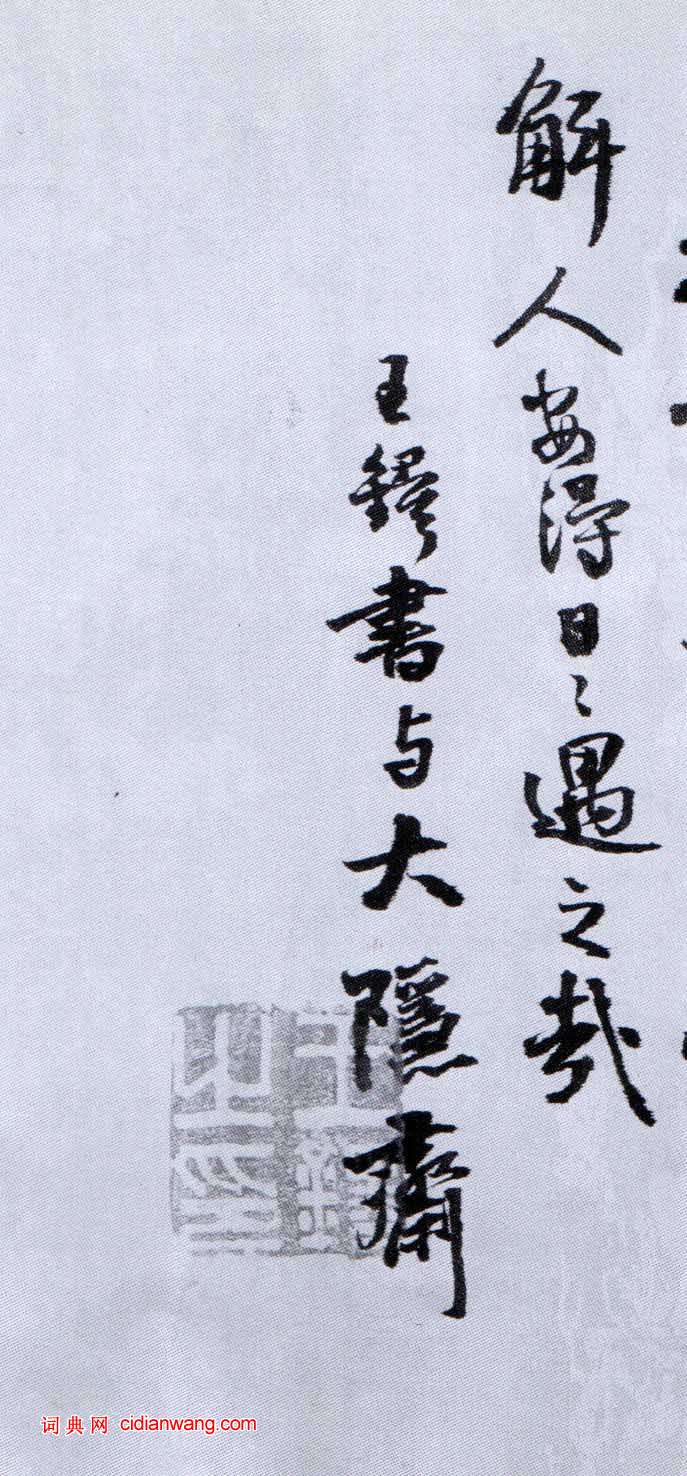 解人安得日〻遇之哉
王鐸書与大隱齋
词典网 cidianwang.com